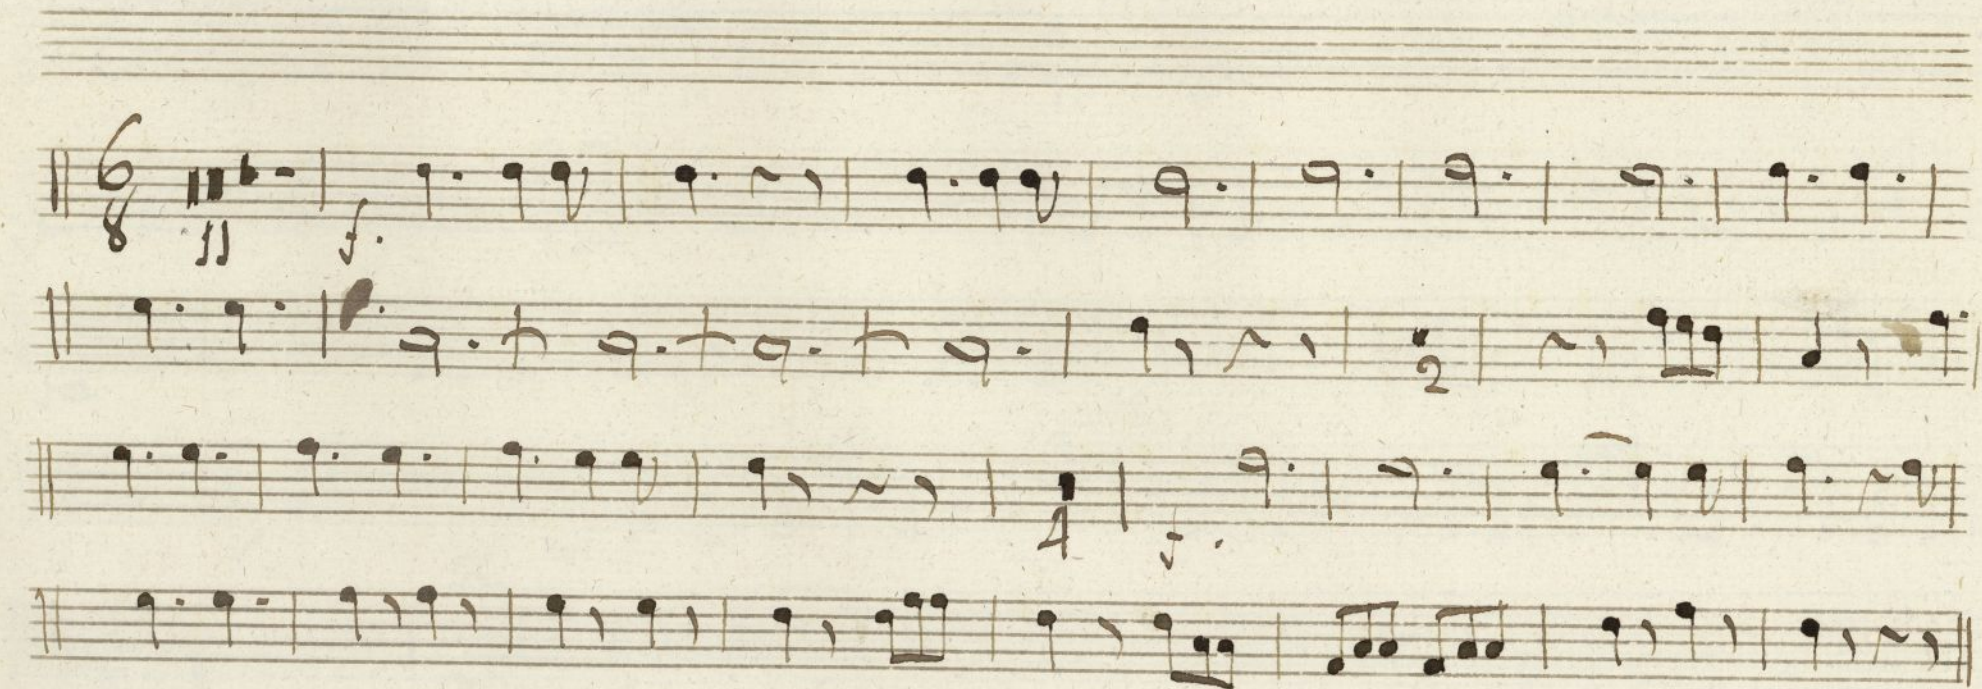 6
8 11 f.
2
4 f.